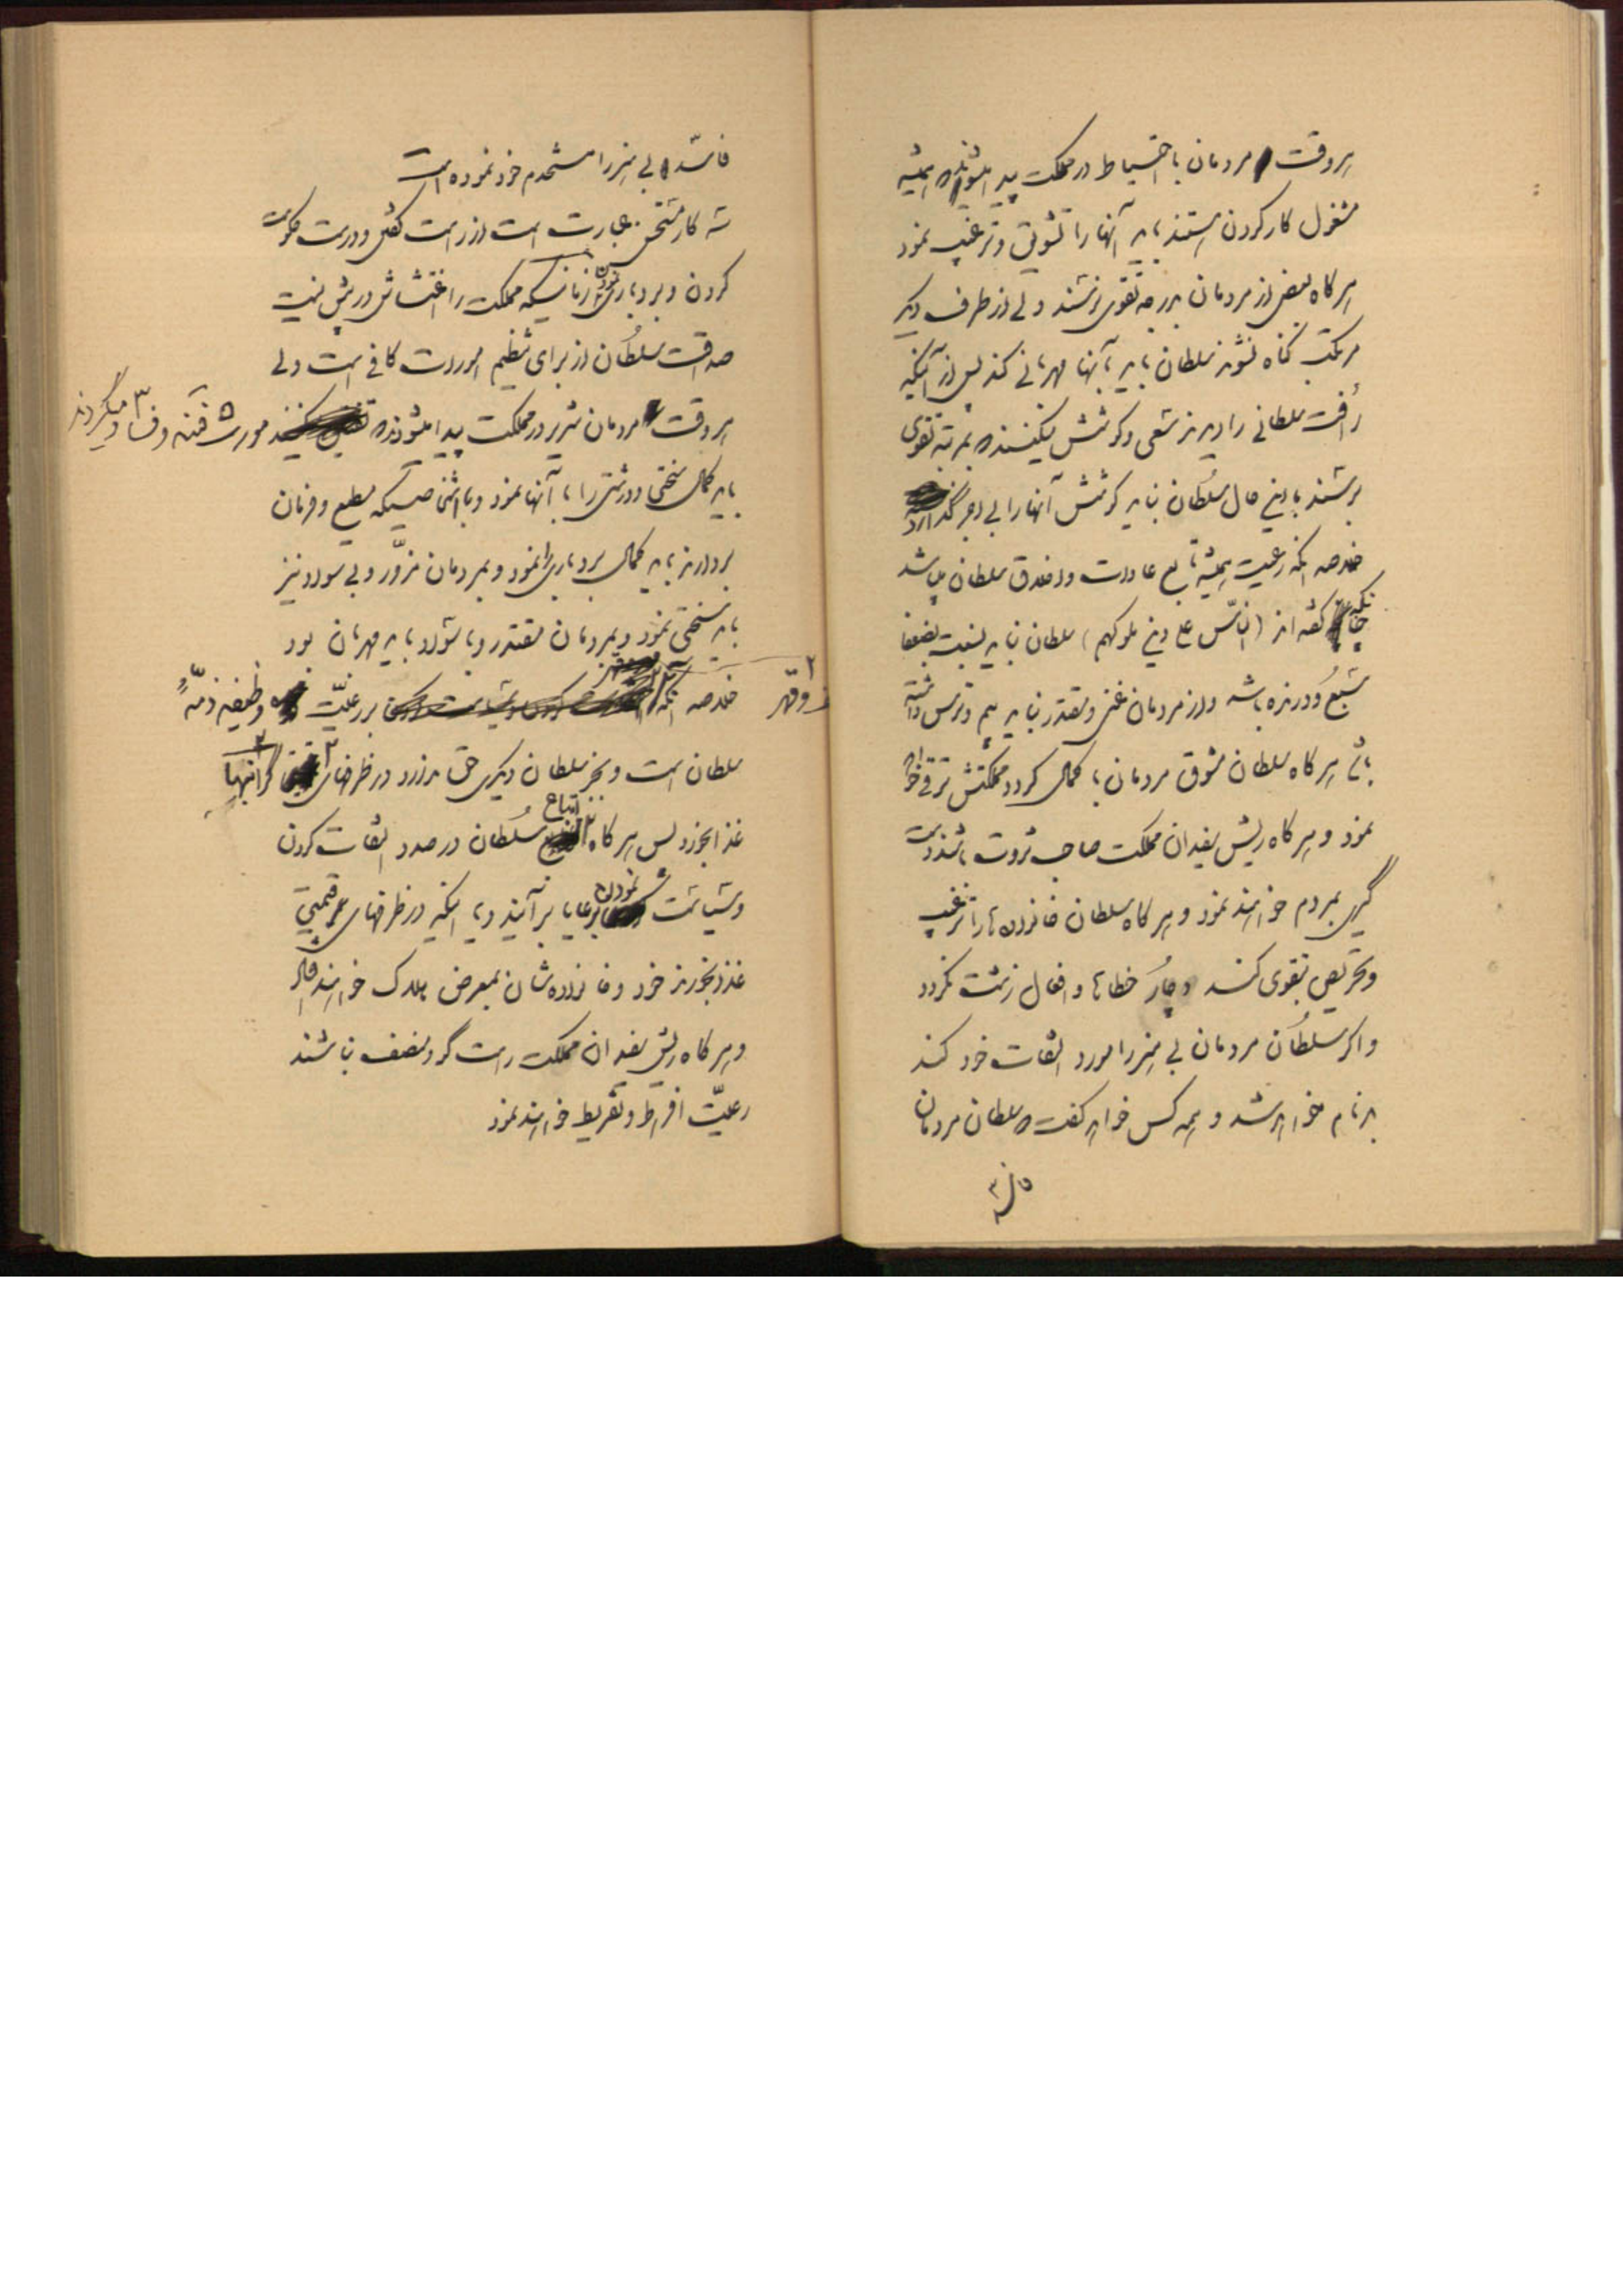 هر وقت مردمان با احتیاط در مملکت پیدا میشوند که همیشه
مشغول کار کردن هستند باید آنها را تشویق و ترغیب نمود
هر گاه بعضی از مردمان بدرجه تقوی نرسند ولی از طرف دیگر
مرتکب گناه نشوند سلطان باید بآنها مهربانی کند پس از آنکه
رأفت سلطانی را دیدند سعی و کوشش میکنند که بمرتبه تقوی
برسند با این حال سلطان نباید کوشش آنها را بی اجر گذارد
خلاصه آنکه رعیت همیشه تابع عادات و اخلاق سلطان میباشد
چنانکه گفته اند (الناس علی دین ملوکهم) سلطان نباید نسبت بضعفا
سبع و درنده باشد و از مردمان غنی و مقتدر نباید بیم و ترس داشته
باشد هر گاه سلطان مشوق مردمان با کمال گردد مملکتش ترقی خواهد
نمود و هر گاه ریش سفیدان مملکت صاحب ثروت باشند دست
گیری بمردم خواهند نمود و هر گاه سلطان خانواده ها را ترغیب
و تحریص بتقوی کند دچار خطاها و افعال زشت نگردد
و اگر سلطان مردمان بی هنر را مورد التفات خود کند
بدنام خواهد شد و همه کس خواهد گفت که سلطان مردمان
فاسد و بی هنر را مستخدم خود نموده است
سه کار مستحسن عبارت است از راست گفتن و درست حکومت
کردن و بردباری نمودن زمانیکه مملکت را اغتشاش در پیش نیست
صداقت سلطان از برای تنظیم امورات کافی است ولی
هر وقت مردمان شریر در مملکت پیدا میشوند که مورث فتنه و فساد میگردند
باید کمال سختی و درشتی را با آنها نمود و با اشخاصیکه مطیع و فرمان
بردارند باید کمال بردباری را نمود و بمردمان مزور و بی سواد نیز
باید سختی نمود و بمردمان مقتدر و با سواد باید مهربان بود
خلاصه آنکه بر رعیت وظیفه ذمه
سلطان است و بجز سلطان دیگری حق ندارد در ظرفهای گرانبها
غذا بخورد پس هر گاه اتباع سلطان در صدد التفات کردن
و سیاست نمودن برعایا برآیند و یا اینکه در ظرفهای پر قیمتی
غذا بخورند خود و خانواده شان بمعرض هلاکت خواهند افتاد
و هر گاه ریش سفیدان مملکت راست گو و منصف نباشند
رعیت افراط و تفریط خواهند نمود